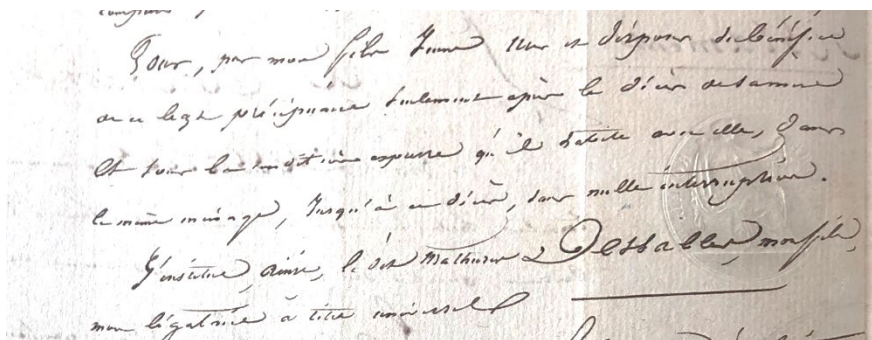 Pour, par mon fils Jenne user et disposer du bénéfice
de ce legs préciputaire seulement après le décès de sa mère
et sous la condition expresse qu'il habite avec elle, dans
le même ménage, jusqu'à ce décès, sans nulle interruption.
J'institue, ainsi, le dit Mathurin Dessables, mon fils,
mon légataire à titre universel